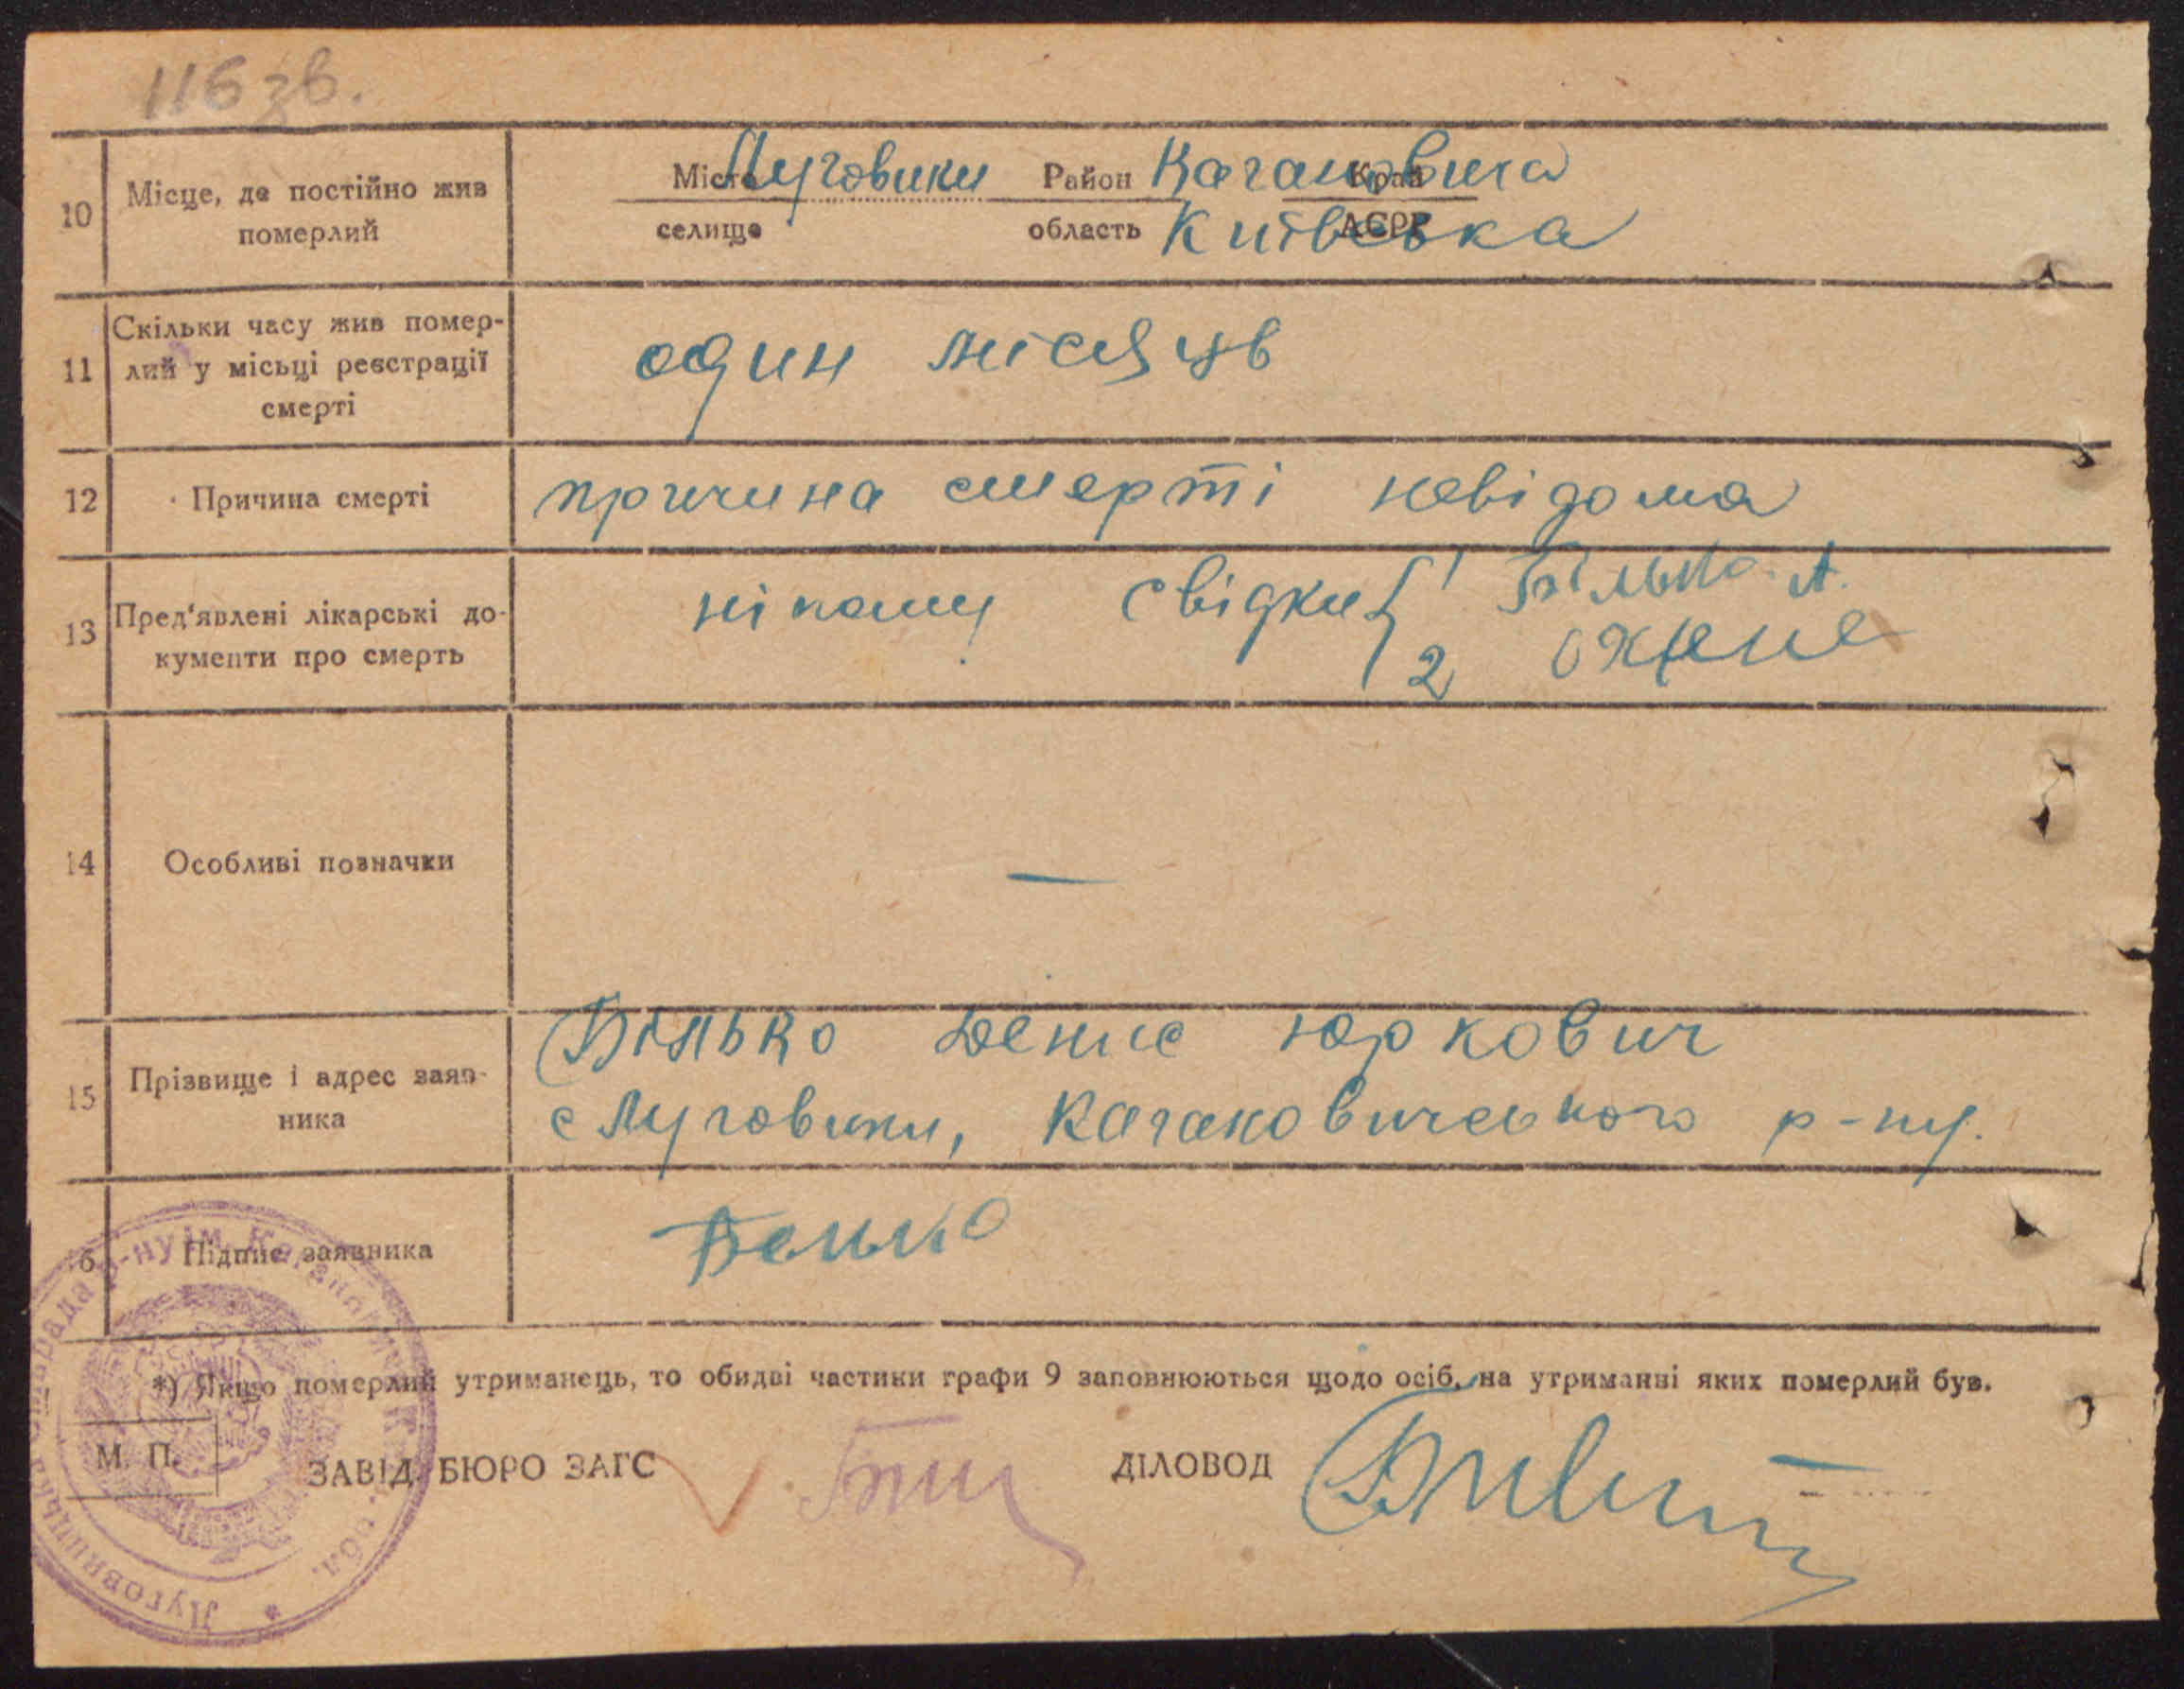 116 зв.
10 Місце, де постійно жив померлий
Місто Луговики Район Кагановича Край
селище область Київська АСРР
11 Скільки часу жив помер-
лий у місьці реєстрації
смерті
один місяць
12 Причина смерті
причина смерті невідома
13 Пред'явлені лікарські до-
кументи про смерть
свідки 1 Білько А.
2
14 Особливі позначки
—
15 Прізвище і адрес заяв-
ника
Білько Денис Юркович
с Луговики, Кагановичського р-ну.
6 Підпис заявника
*) Якщо померлий утриманець, то обидві частини графи 9 заповнюються щодо осіб, на утриманні яких померлий був.
М. П.
ЗАВІД. БЮРО ЗАГС
ДІЛОВОД